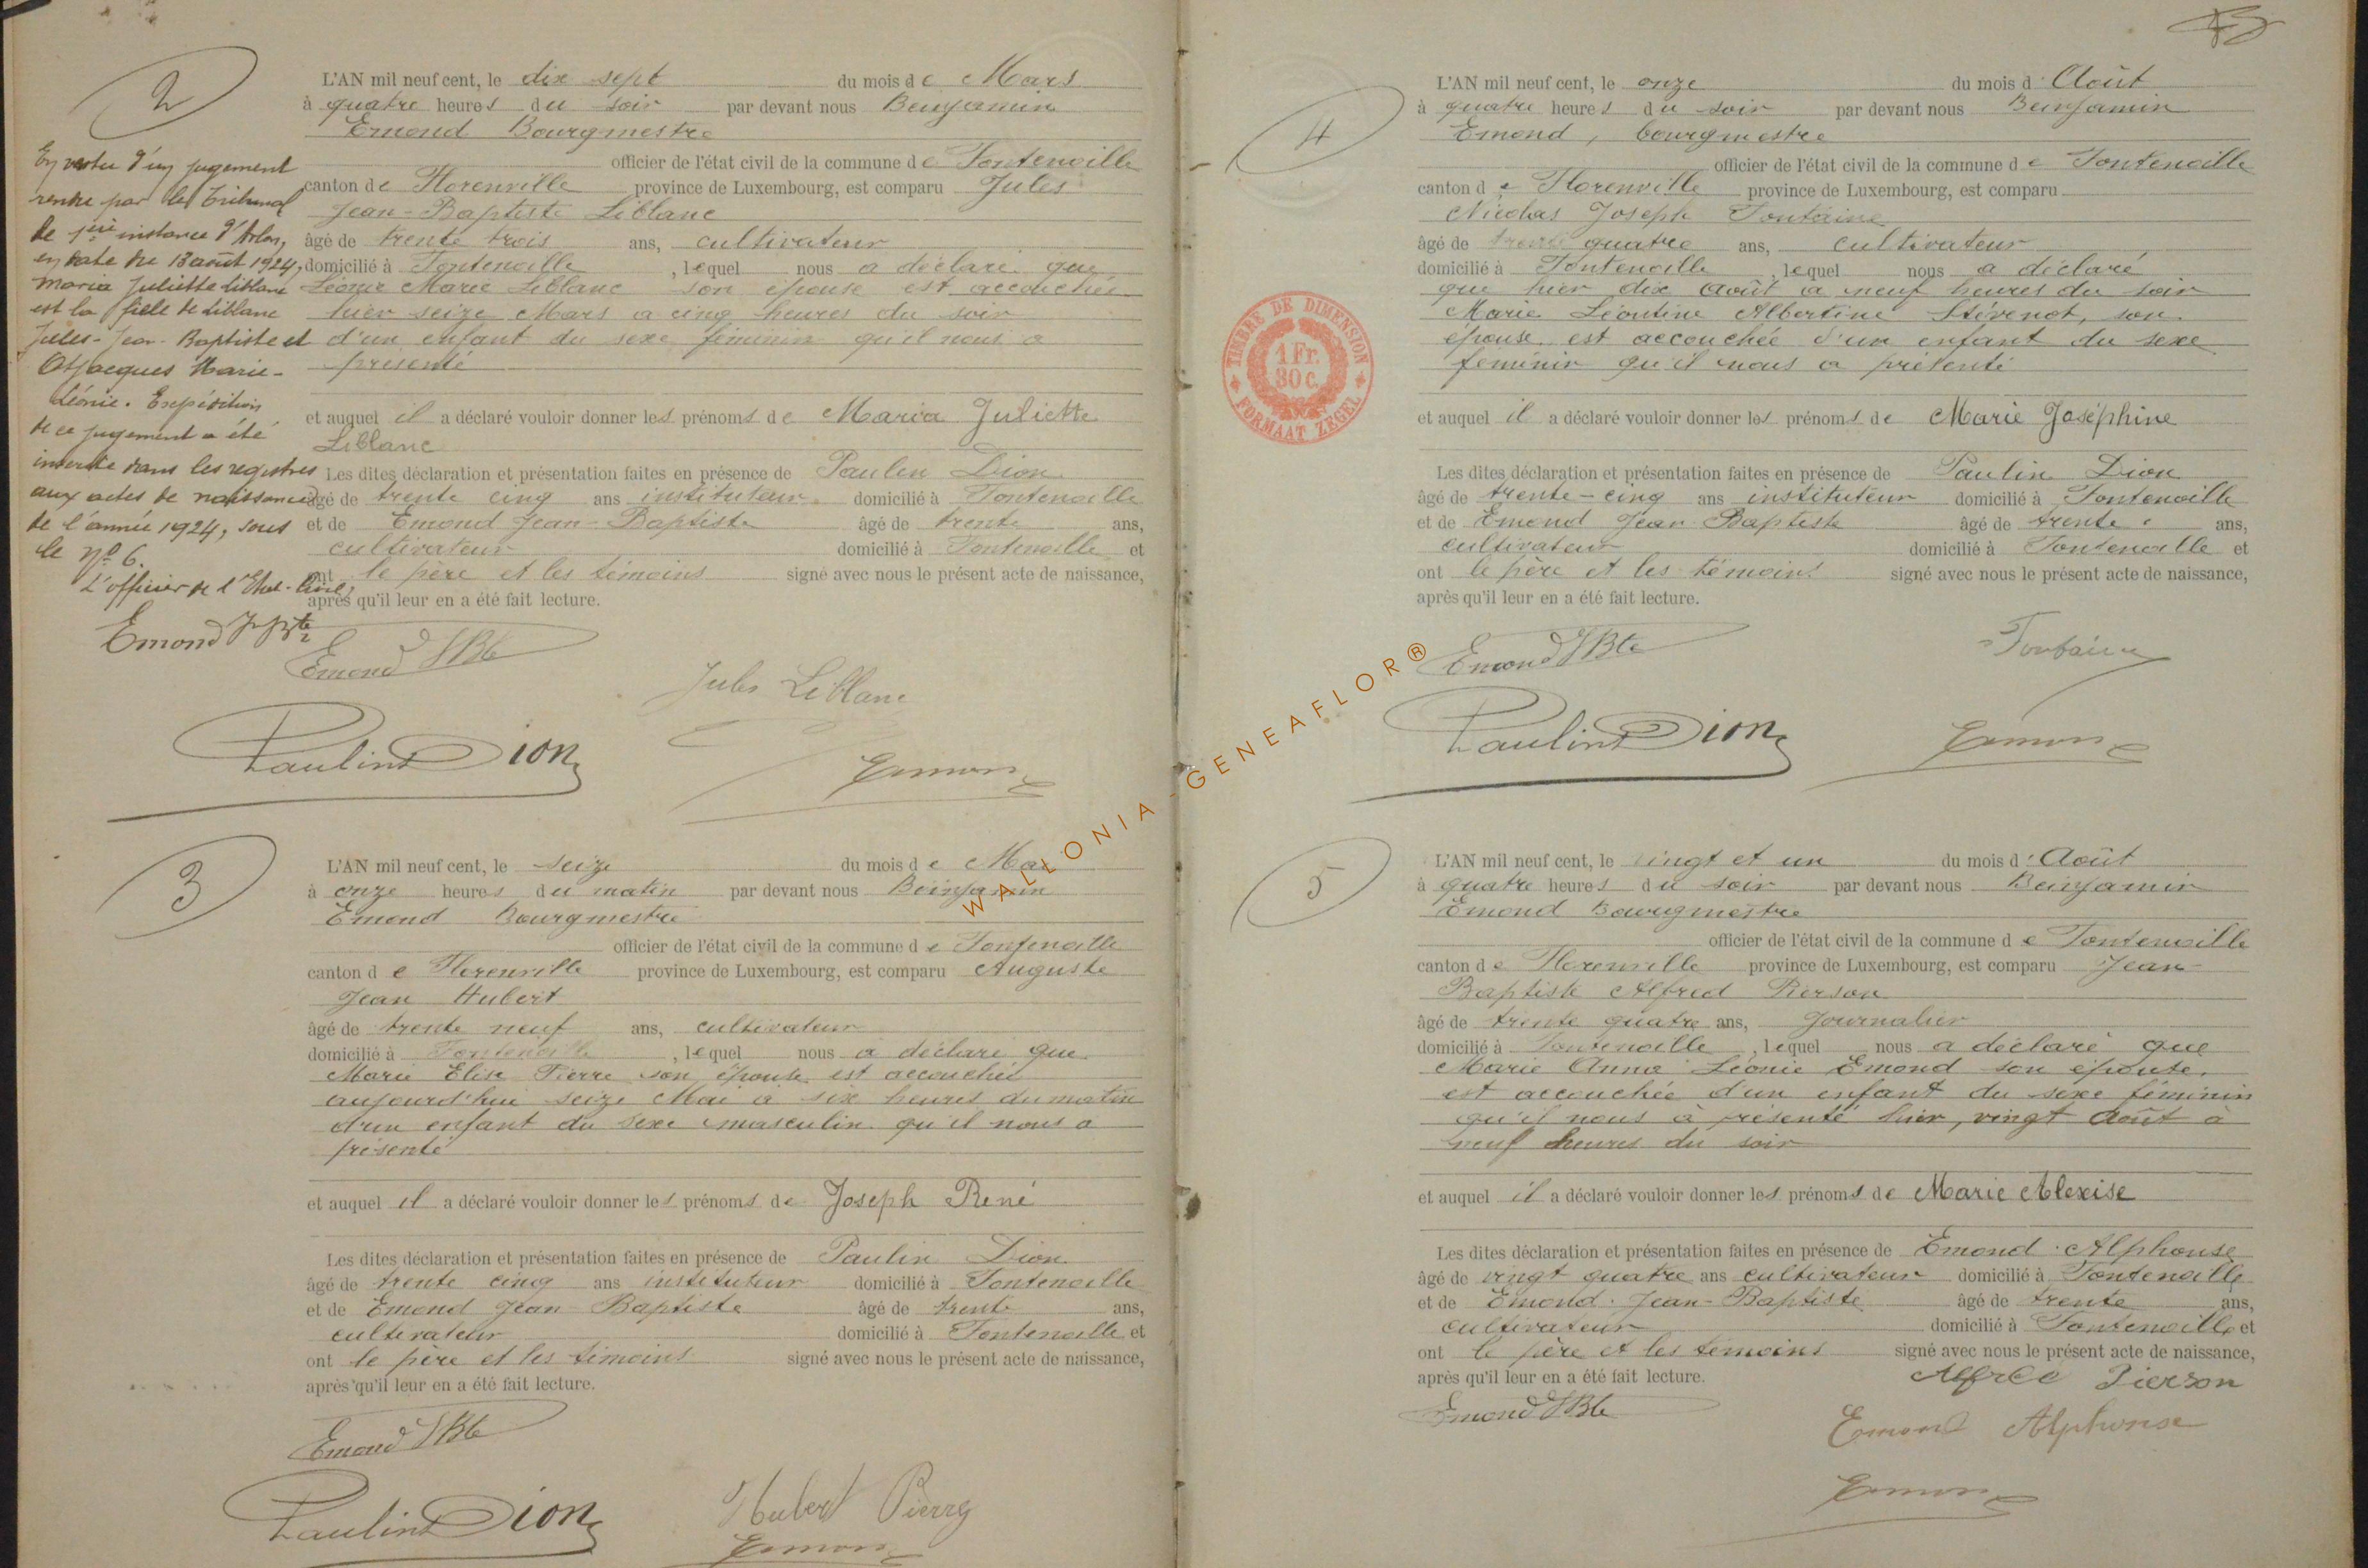 2
L'AN mil neuf cent, le dix sept du mois de Mars
à quatre heures du soir par devant nous Benjamin
Emond Bourgmestre
officier de l'état civil de la commune de Fontenoille
canton de Florenville province de Luxembourg, est comparu Jules
Jean-Baptiste Leblanc
âgé de trente trois ans, cultivateur
domicilié à Fontenoille, lequel nous a déclaré que
Léonie Marie Leblanc son épouse est accouchée
hier seize Mars à cinq heures du soir
d'un enfant du sexe féminin qu'il nous a
présenté
et auquel il a déclaré vouloir donner les prénoms de Maria Juliette
Leblanc
Les dites déclaration et présentation faites en présence de Paulin Dion
âgé de trente cinq ans instituteur domicilié à Fontenoille
et de Emond Jean-Baptiste âgé de trente ans,
cultivateur domicilié à Fontenoille et
ont le père et les témoins signé avec nous le présent acte de naissance,
après qu'il leur en a été fait lecture.
En vertu d'un jugement
rendu par le Tribunal
de 1ère instance d'Arlon,
en date du 13 août 1924,
Maria Juliette Leblanc
est la fille de Leblanc
Jules-Jean-Baptiste et
Otjacques Marie-
Léonie. Expédition
de ce jugement a été
inscrite dans les registres
aux actes de naissance
de l'année 1924, sous
le No 6.
L'officier de l'Etat-Civil,
Emond
Emond JBte
Jules Leblanc
Paulin Dion
Emond
3
L'AN mil neuf cent, le seize du mois de Mai
à onze heures du matin par devant nous Beinjamin
Emond Bourgmestre
officier de l'état civil de la commune de Fontenoille
canton de Florenville province de Luxembourg, est comparu Auguste
Jean Hubert
âgé de trente neuf ans, cultivateur
domicilié à Fontenoille, lequel nous a déclaré que
Marie Elise Pierre son épouse est accouchée
aujourd'hui seize Mai à six heures du matin
d'un enfant du sexe masculin qu'il nous a
présenté
et auquel il a déclaré vouloir donner les prénoms de Joseph René
Les dites déclaration et présentation faites en présence de Paulin Dion
âgé de trente cinq ans instituteur domicilié à Fontenoille
et de Emond Jean-Baptiste âgé de trente ans,
cultivateur domicilié à Fontenoille et
ont le père et les témoins signé avec nous le présent acte de naissance,
après qu'il leur en a été fait lecture.
Emond JBte
Paulin Dion
Hubert Pierre
Emond
4
L'AN mil neuf cent, le onze du mois d'Août
à quatre heures du soir par devant nous Beinjamin
Emond, bourgmestre
officier de l'état civil de la commune de Fontenoille
canton de Florenville province de Luxembourg, est comparu
Nicolas Joseph Fontaine
âgé de trente quatre ans, cultivateur
domicilié à Fontenoille, lequel nous a déclaré
que hier dix août à neuf heures du soir
Marie Léontine Albertine Stévenot, son
épouse est accouchée d'un enfant du sexe
féminin qu'il nous a présenté
et auquel il a déclaré vouloir donner les prénoms de Marie Joséphine
Les dites déclaration et présentation faites en présence de Paulin Dion
âgé de trente-cinq ans instituteur domicilié à Fontenoille
et de Emond Jean-Baptiste âgé de trente ans,
cultivateur domicilié à Fontenoille et
ont le père et les témoins signé avec nous le présent acte de naissance,
après qu'il leur en a été fait lecture.
Emond JBte
Fontaine
Paulin Dion
Emond
TIMBRE DE DIMENSION
1 Fr.
30 c.
FORMAAT ZEGEL
5
L'AN mil neuf cent, le vingt et un du mois d'Août
à quatre heures du soir par devant nous Beinjamin
Emond Bourgmestre
officier de l'état civil de la commune de Fontenoille
canton de Florenville province de Luxembourg, est comparu Jean-
Baptiste Alfred Pierson
âgé de trente quatre ans, journalier
domicilié à Fontenoille, lequel nous a déclaré que
Marie Anna Léonie Emond son épouse,
est accouchée d'un enfant du sexe féminin
qu'il nous à présenté hier, vingt Août à
neuf heures du soir
et auquel il a déclaré vouloir donner les prénoms de Marie Alexise
Les dites déclaration et présentation faites en présence de Emond Alphonse
âgé de vingt quatre ans cultivateur domicilié à Fontenoille
et de Emond Jean-Baptiste âgé de trente ans,
cultivateur domicilié à Fontenoille et
ont le père et les témoins signé avec nous le présent acte de naissance,
après qu'il leur en a été fait lecture.
Alfred Pierson
Emond JBte
Emond Alphonse
Emond
WALLONIA - GENEAFLOR®